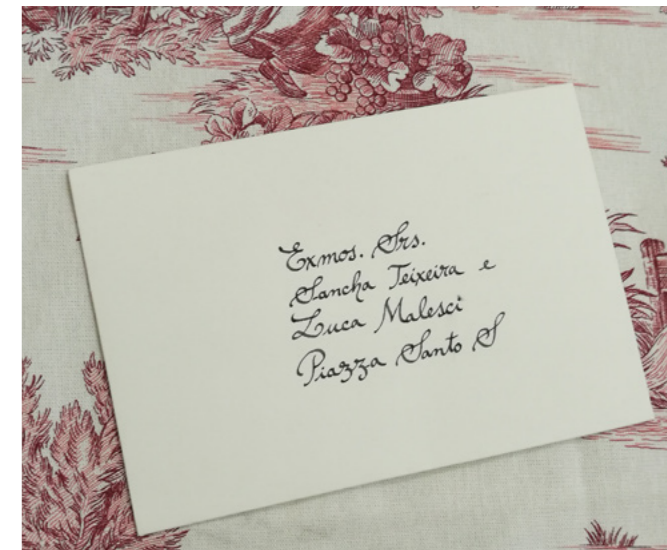 Exmos. Srs.
Sancha Teixeira e
Luca Malesci
Piazza Santo S